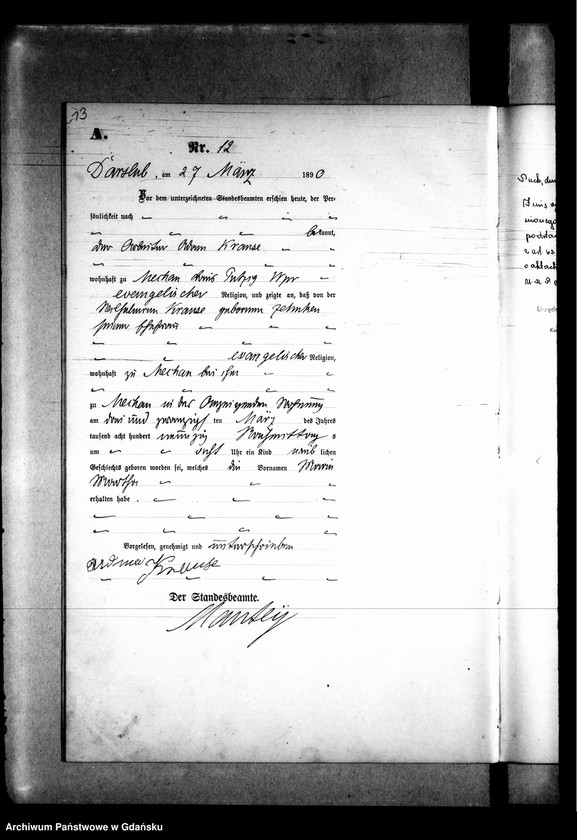 13
A.
Nr. 12
Darslub, am 27 März 1890
Vor dem unterzeichneten Standesbeamten erschien heute, der Per-
sönlichkeit nach
bekannt,
der Arbeiter Adam Krause
wohnhaft zu Mechau Kreis Putzig Wpr
evangelischer Religion, und zeigte an, daß von der
Krause geborenen
seiner Ehefrau
evangelischer Religion,
wohnhaft zu Mechau bei ihm
zu Mechau in der Wohnung
am drei und zwanzigsten März des Jahres
tausend acht hundert neunzig Nachmittag s
um acht Uhr ein Kind weiblichen
Geschlechts geboren worden sei, welches die Vornamen Maria
Martha
erhalten habe.
Vorgelesen, genehmigt und unterschrieben
Krause
Der Standesbeamte.
Archiwum Państwowe w Gdańsku